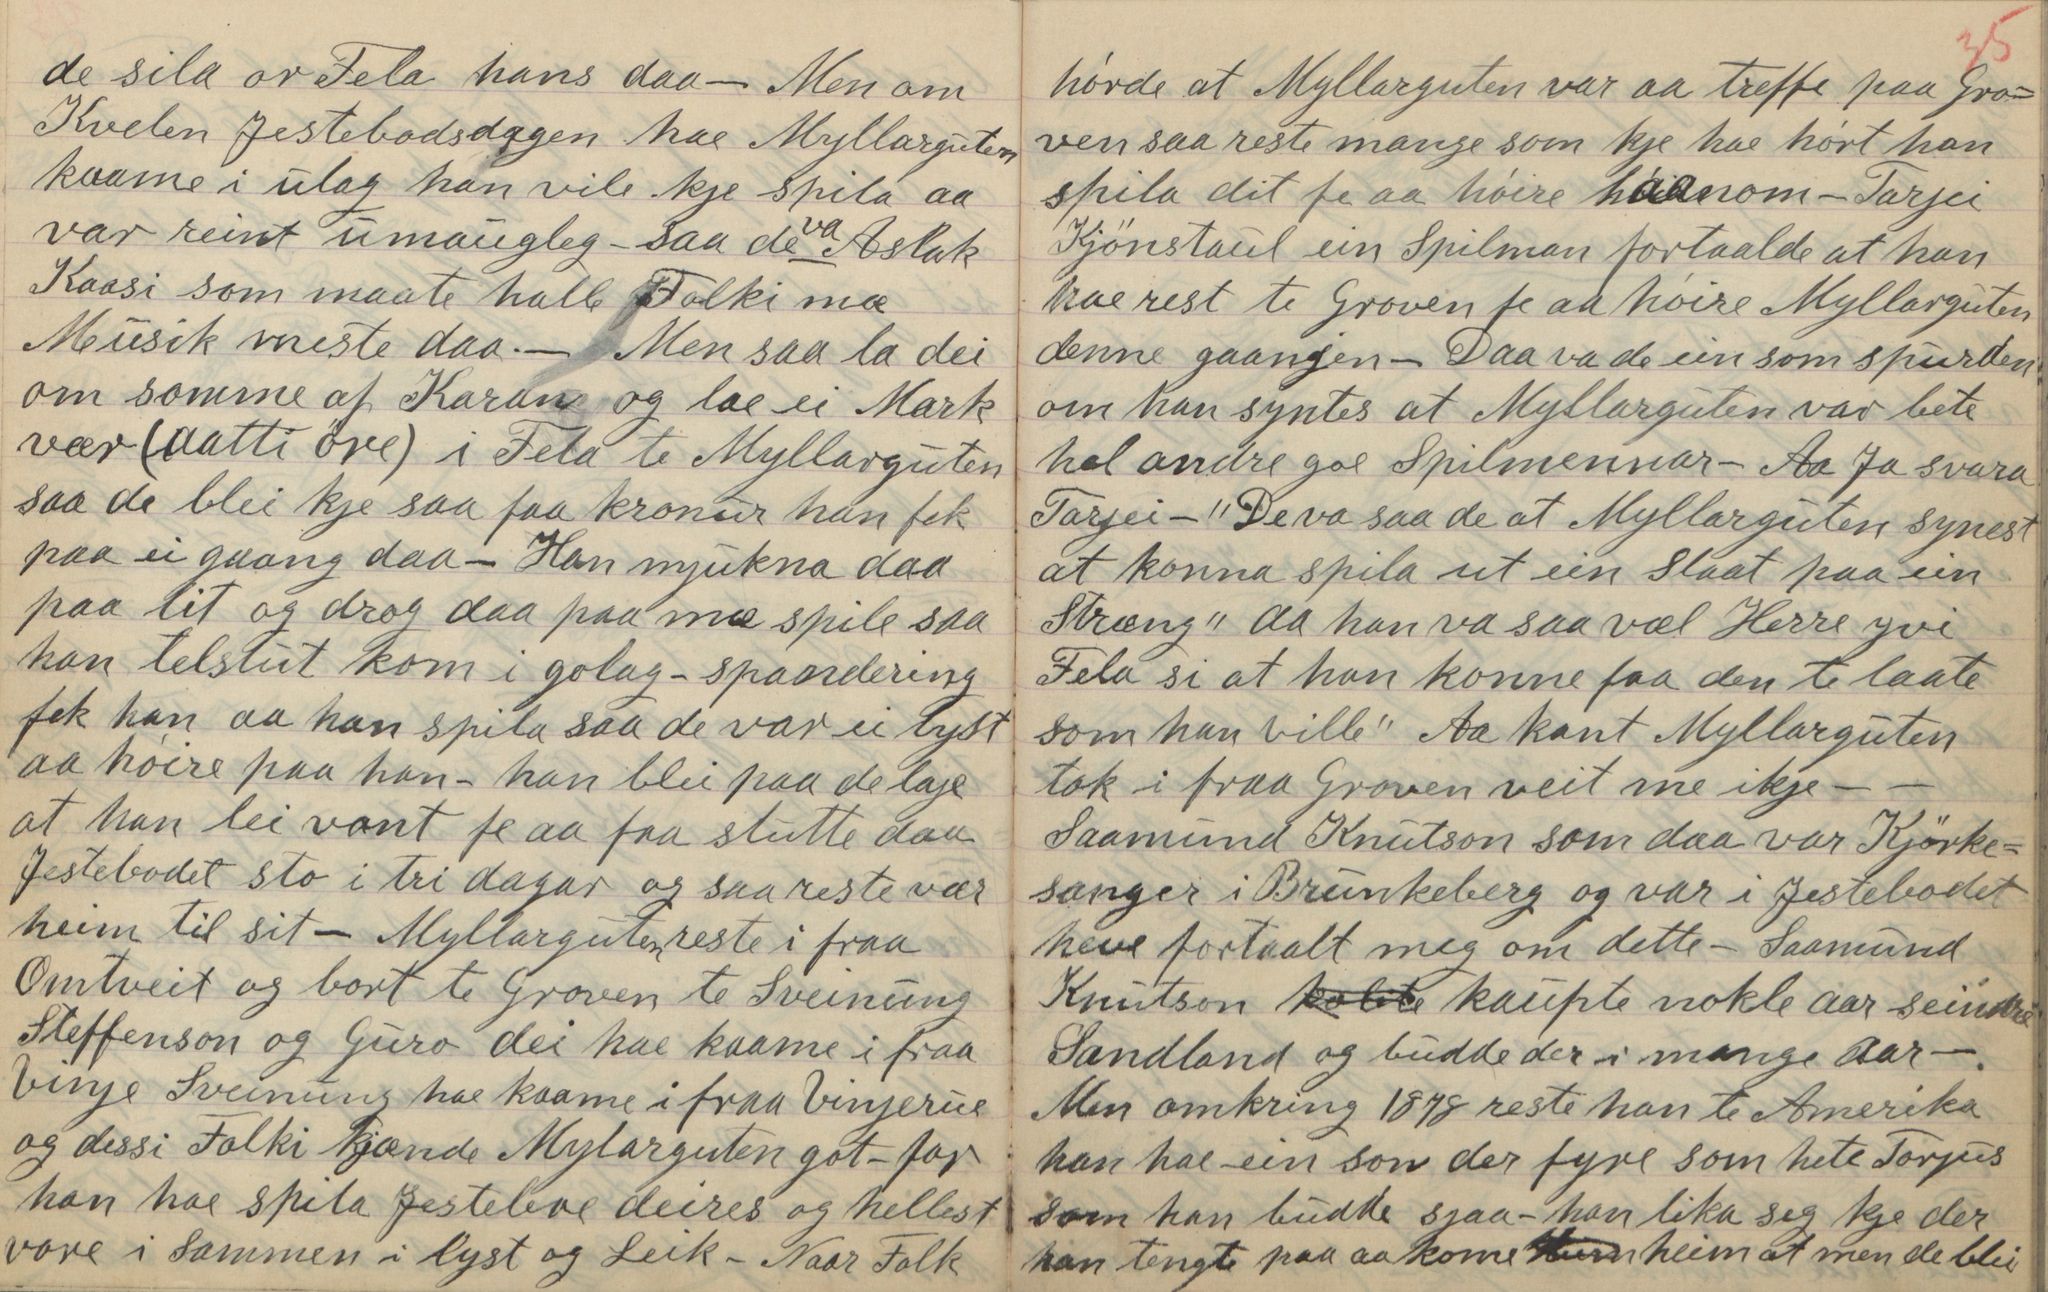 de sila or Fela hans daa — Men om
Kvelen Jestebodsdagen hae Myllarguten
kaame i ulag han vile kje spila aa
var reint umaugleg – saa de va Aslak
Kaasi som maate halle Folki mæ
Musik meste daa. — Men saa la dei
om somme af Karan og lae ei Mark
vær (aatti öre) i Fela te Myllarguten
saa de blei kje saa faa kronur han fek
paa ei gaang daa – Han mjukna daa
paa lit og drog daa paa mæ spile saa
han telslut kom i golag – spandering
fek han aa han spila saa de var ei lyst
aa höire paa han – han blei paa de laje
at han lei vont fe aa faa slutte daa
Jestebodet sto i tri dagar og saa reste vær
heim til sit – Myllarguten reste i fraa
Omtveit og bort te Groven te Sveinung
Steffenson og Guro dei hae kaame i fraa
Vinje Sveinung hae kaame i fraa Vinjerue
og dessi Folki kjænde Mylarguten got – for
han hae spila Jestebore deires og hellest
vore i Sammen i lyst og Leik – Naar Folk
35
hörde at Myllarguten var aa treffe paa Gro=
ven saa reste mange som kje hae hört han
spila dit fe aa höire haanom – Tarjei
Kjönstaul ein Spilman fortaalde at han
hae rest te Groven fe aa höire Myllarguten
denne gaangjen – Daa va de ein som spurden
om han syntes at Myllarguten var bete
hel andre goe Spilmennar – Aa Ja svara
Tarjei – "De va saa de at Myllarguten synest
at konna spila ut ein Slaat paa ein
Stræng" aa han va saa væl Herre yvi
Fela si at han konne faa den te laate
som han ville" Aa kant Myllarguten
tok i fraa Groven veit me ikje – –
Saamund Knutson som daa var Kjörke=
sanger i Brunkeberg og var i Jestebodet
heve fortaalt meg om dette – Saamund
Knutson kaupte nokle aar seindre
Sandland og budde der i mange Aar –.
Men omkring 1878 reste han te Amerika
han hae ein son der fyre som hete Torjus
som han budde sjaa – han lika seg kje der
han tengte paa aa kome heim at men de blei